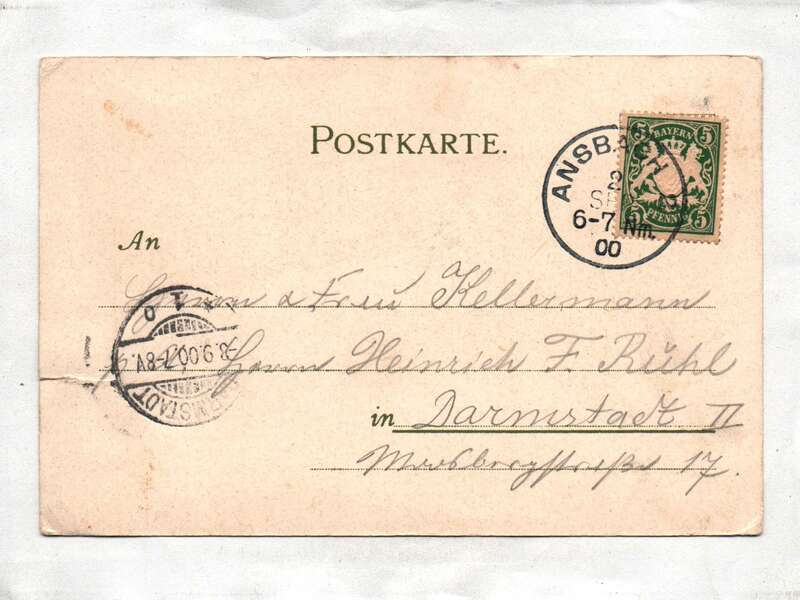 POSTKARTE.
ANSBACH
2
SE
6-7 Nm.
00
5 BAYERN 5
5 PFENNIG 5
An
Herrn & Frau Kellermann
Herrn Heinrich F. Rühl
in Darmstadt II
Moosbergstraße 17.
DARMSTADT
3.9.00.7-8V.
* 1 0